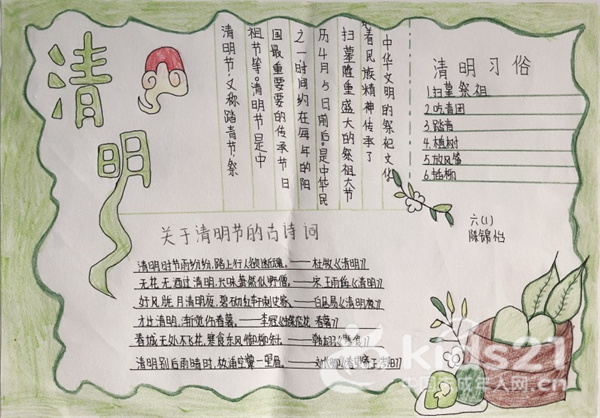 清明
清明节,又称踏青节祭
祖节等,清明节是中
国最重要要的传承节日
之一时间约在每年的阳
历4月5日前后,是中华民
扫墓隆重盛大的祭祖大节
着民族精神传承了
中华文明的祭祀文化
清明习俗
1.扫墓祭祖
2.吃青团
3.踏青
4.植树
5.放风筝
6.插柳
六(1)
陈锦怡
关于清明节的古诗词
清明时节雨纷纷,路上行人欲断魂。——杜牧《清明》
无花无酒过清明,兴味萧然似野僧。——宋 王禹偁《清明》
好风胧月清明夜,碧砌红轩刺史家。——白居易《清明夜》
才过清明,渐觉伤春暮。——李冠《蝶恋花 春暮》
春城无处不飞花,寒食东风御柳斜。——韩翃《寒食》
清明别后雨晴时,极浦空颦一望眉。——刘
kids21